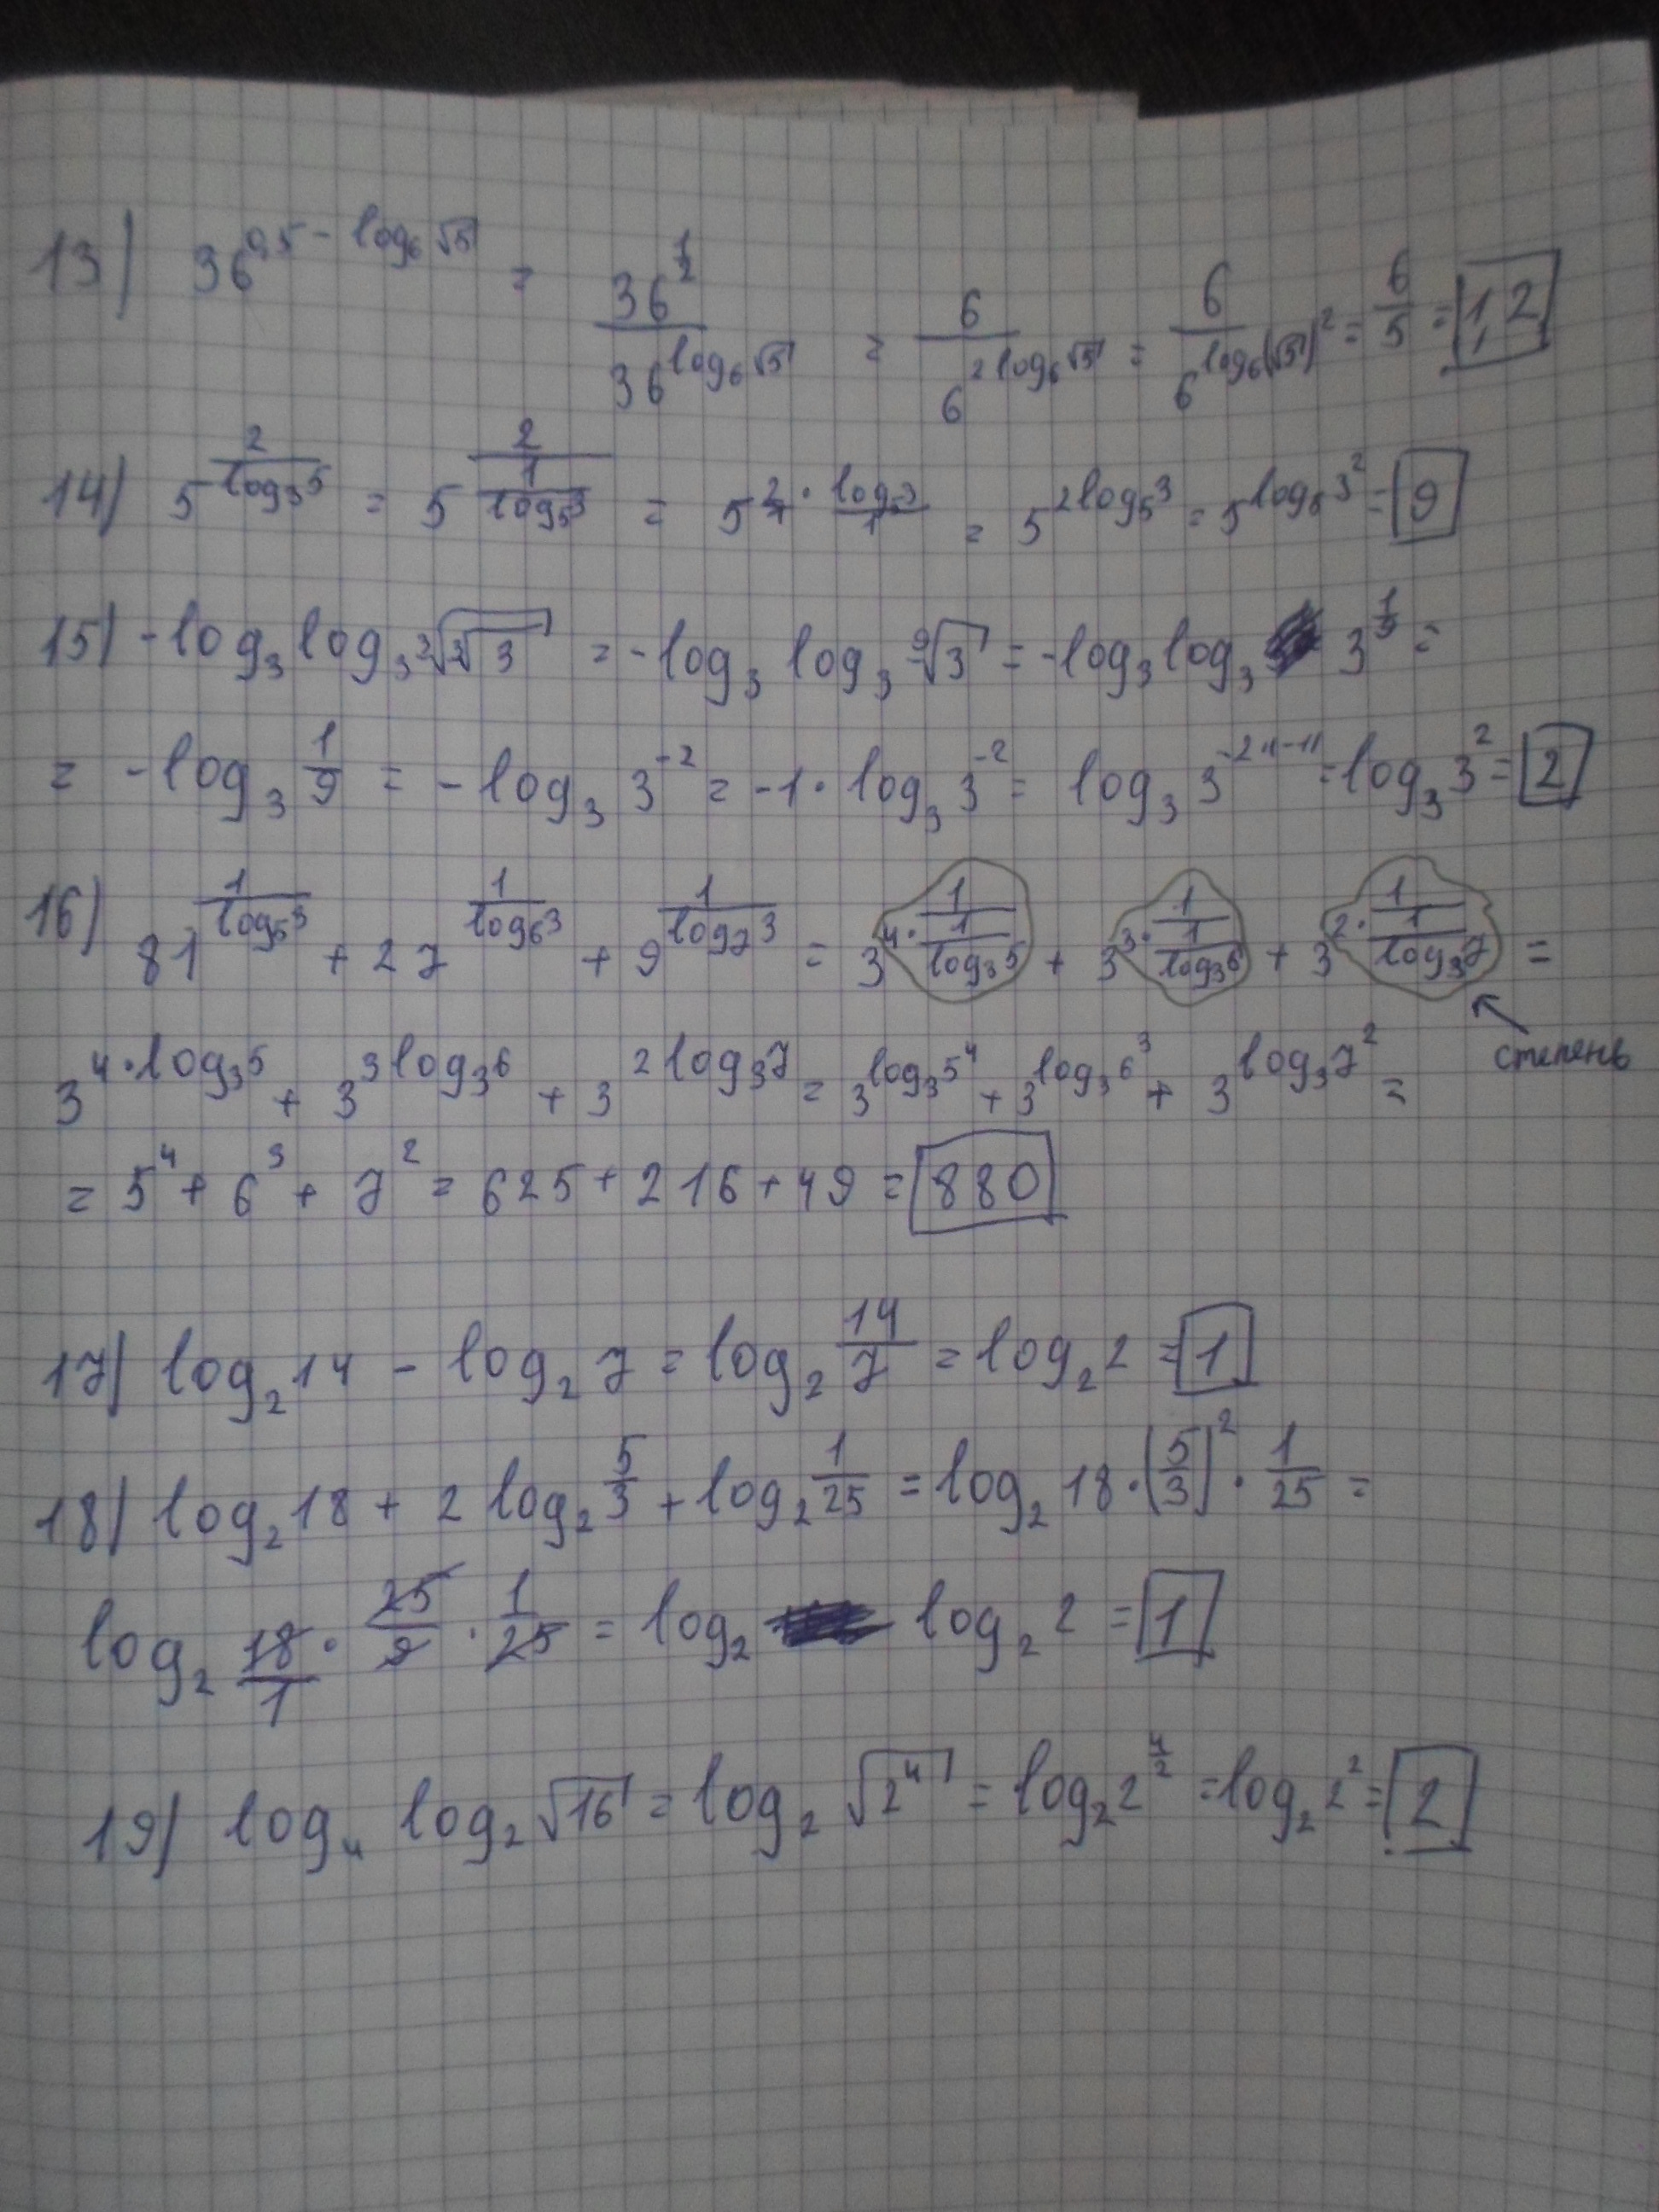 13) 36^{0,5 - log_6 √5} = \frac{36^{\frac{1}{2}}}{36^{log_6 √5}} = \frac{6}{6^{2 log_6 √5}} = \frac{6}{6^{log_6 (√5)^2}} = \frac{6}{5} = 1,2
14) 5^{\frac{2}{log_3 5}} = 5^{\frac{2}{\frac{1}{log_5 3}}} = 5^{\frac{2}{1} · \frac{log_5 3}{1}} = 5^{2 log_5 3} = 5^{log_5 3^2} = 9
15) -log_3 log_3 \sqrt[3]{\sqrt[3]{3}} = -log_3 log_3 \sqrt[9]{3} = -log_3 log_3 3^{\frac{1}{9}} =
= -log_3 \frac{1}{9} = -log_3 3^{-2} = -1 · log_3 3^{-2} = log_3 3^{-2·(-1)} = log_3 3^2 = 2
16) 81^{\frac{1}{log_5 3}} + 27^{\frac{1}{log_6 3}} + 9^{\frac{1}{log_7 3}} = 3^{4 · \frac{1}{\frac{1}{log_3 5}}} + 3^{3 · \frac{1}{\frac{1}{log_3 6}}} + 3^{2 · \frac{1}{\frac{1}{log_3 7}}} =
степень
3^{4 · log_3 5} + 3^{3 log_3 6} + 3^{2 log_3 7} = 3^{log_3 5^4} + 3^{log_3 6^3} + 3^{log_3 7^2} =
= 5^4 + 6^3 + 7^2 = 625 + 216 + 49 = 880
17) log_2 14 - log_2 7 = log_2 \frac{14}{7} = log_2 2 = 1
18) log_2 18 + 2 log_2 \frac{5}{3} + log_2 \frac{1}{25} = log_2 18 · (\frac{5}{3})^2 · \frac{1}{25} =
log_2 \frac{18}{1} · \frac{25}{9} · \frac{1}{25} = log_2 log_2 2 = 1
19) log_4 log_2 √16 = log_2 √2^4 = log_2 2^{\frac{4}{2}} = log_2 2^2 = 2